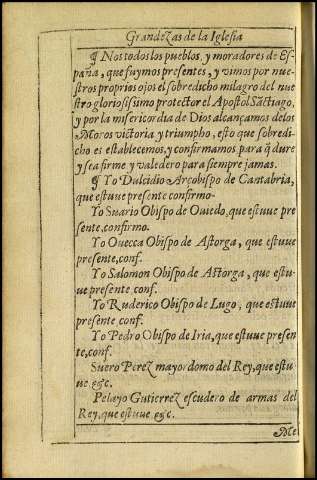 Grandezas de la Iglesia
¶ Nos todos los pueblos, y moradores de Es-
paña, que fuymos presentes, y vimos por nue-
stros proprios ojos el sobredicho milagro del nue
stro gloriosissimo protector el Apostol Sãctiago,
y por la misericordia de Dios alcançamos de los
Moros victoria y triumpho, esto que sobredi-
cho es establecemos, y confirmamos para q̃ dure
y sea firme y valedero para siempre jamas.
¶ Yo Dulcidio Arçobispo de Cantabria,
que estuue presente confirmo.
Yo Suario Obispo de Ouiedo, que estuue pre
sente, confirmo.
Yo Ouecca Obispo de Astorga, que estuue
presente, conf.
Yo Salomon Obispo de Astorga, que estu-
ue presente conf.
Yo Ruderico Obispo de Lugo, que estuue
presente conf.
Yo Pedro Obispo de Iria, que estuue presen
te, conf.
Suero Perez mayordomo del Rey, que estu
ue &c.
Pelayo Gutierrez escudero de armas del
Rey, que estuue &c.
Me